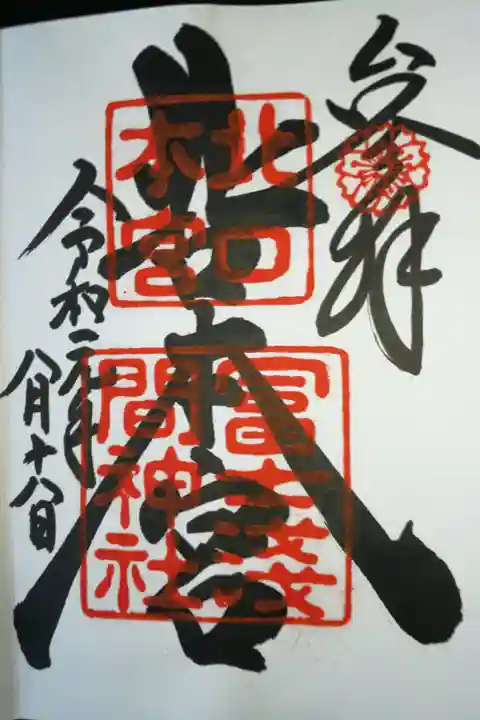 奉拝
北口本宮
北口
本宮
冨士浅
間神社
令和二年
八月十八日